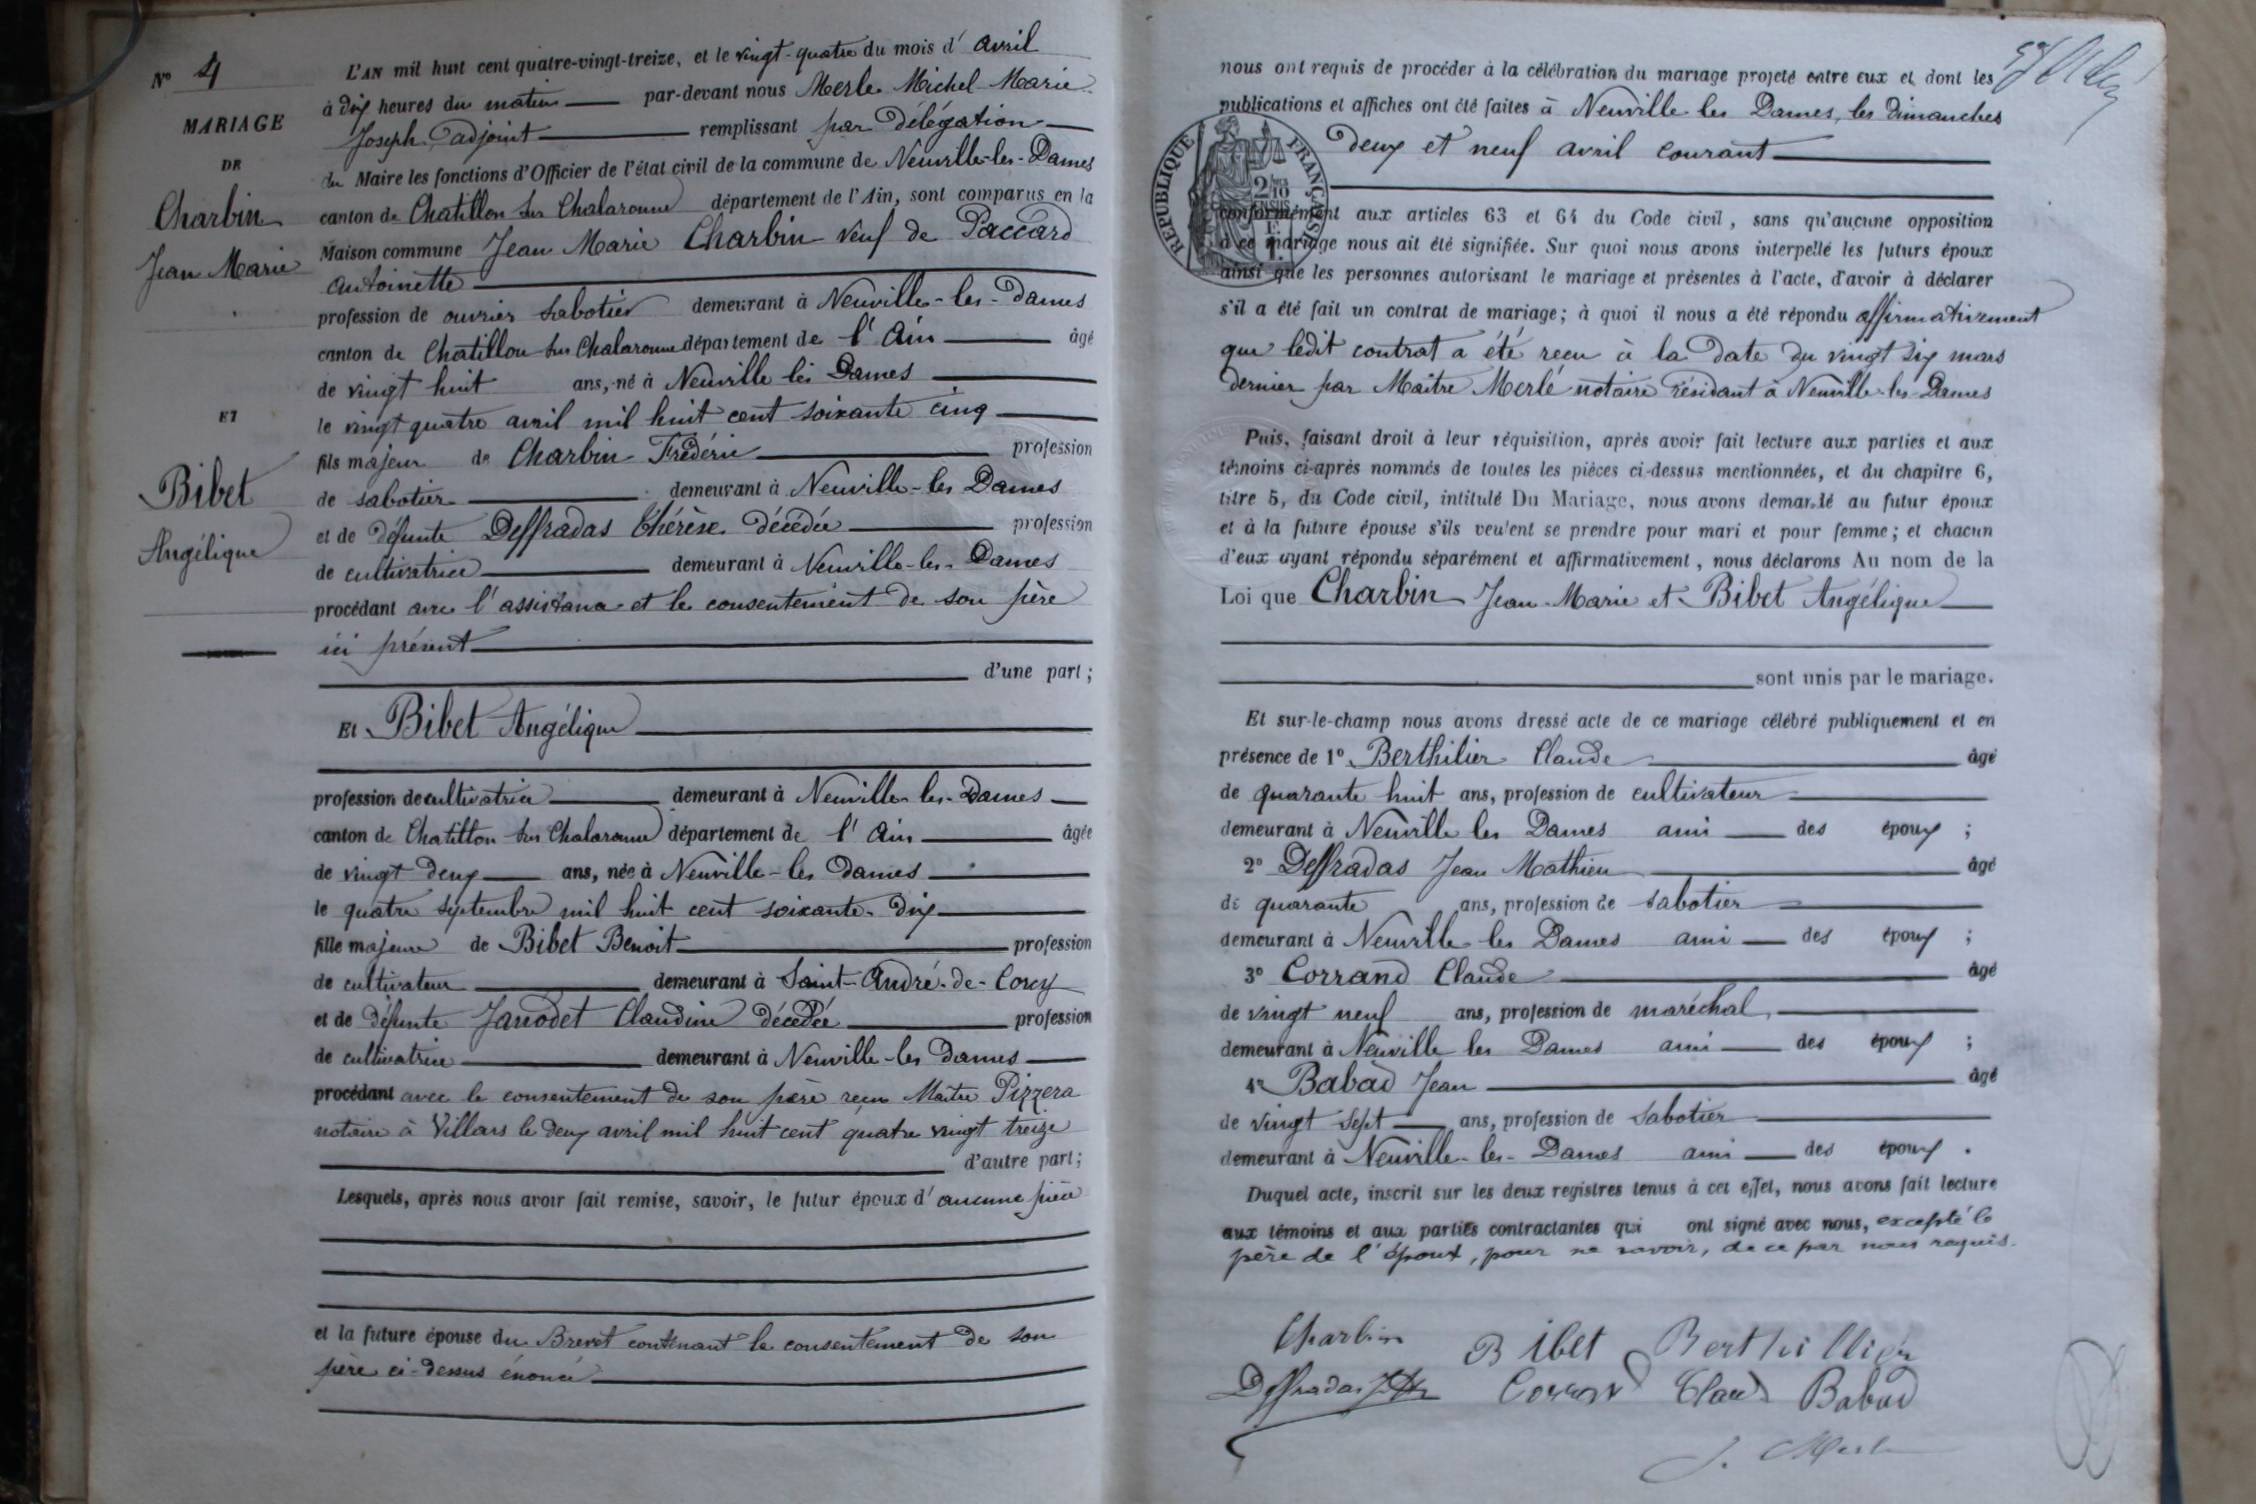 N° 4
MARIAGE
DE
Charbin
Jean Marie
ET
Bibet
Angélique
L'AN mil huit cent quatre-vingt-treize, et le vingt-quatre du mois d' avril
à dix heures du matin par-devant nous Merle Michel Marie
Joseph, adjoint remplissant par délégation
du Maire les fonctions d'Officier de l'état civil de la commune de Neuville-les-Dames
canton de Chatillon sur Chalaronne département de l'Ain, sont comparus en la
Maison commune Jean Marie Charbin veuf de Paccard
Antoinette
profession de ouvrier sabotier demeurant à Neuville-les-Dames
canton de Chatillon sur Chalaronne département de l'Ain âgé
de vingt huit ans, né à Neuville les Dames
le vingt quatre avril mil huit cent soixante cinq
fils majeur de Charbin Frédéric profession
de sabotier demeurant à Neuville-les Dames
et de défunte Deffradas Thérèse décédée profession
de cultivatrice demeurant à Neuville-les-Dames
procédant avec l'assistance et le consentement de son père
ici présent
d'une part ;
Et Bibet Angélique
profession de cultivatrice demeurant à Neuville les-Dames
canton de Chatillon sur Chalaronne département de l'Ain âgée
de vingt deux ans, née à Neuville-les Dames
le quatre septembre mil huit cent soixante-dix
fille majeure de Bibet Benoit profession
de cultivateur demeurant à Saint-André-de-Corcy
et de défunte Janodet Claudine décédée profession
de cultivatrice demeurant à Neuville-les Dames
procédant avec le consentement de son père reçu Maître Pizzera
notaire à Villars le deux avril mil huit cent quatre vingt treize
d'autre part ;
Lesquels, après nous avoir fait remise, savoir, le futur époux d' aucune pièce
et la future épouse du Brevet contenant le consentement de son
père ci-dessus énoncé
nous ont requis de procéder à la célébration du mariage projeté entre eux et dont les
publications et affiches ont été faites à Neuville les Dames, les dimanches
deux et neuf avril courant
RÉPUBLIQUE FRANÇAISE
2/10
conformément aux articles 63 et 64 du Code civil, sans qu'aucune opposition
à ce mariage nous ait été signifiée. Sur quoi nous avons interpellé les futurs époux
ainsi que les personnes autorisant le mariage et présentes à l'acte, d'avoir à déclarer
s'il a été fait un contrat de mariage ; à quoi il nous a été répondu affirmativement
que ledit contrat a été reçu à la date du vingt six mars
dernier par Maître Merlé notaire résidant à Neuville-les-Dames
Puis, faisant droit à leur réquisition, après avoir fait lecture aux parties et aux
témoins ci-après nommés de toutes les pièces ci-dessus mentionnées, et du chapitre 6,
titre 5, du Code civil, intitulé Du Mariage, nous avons demandé au futur époux
et à la future épouse s'ils veulent se prendre pour mari et pour femme ; et chacun
d'eux ayant répondu séparément et affirmativement, nous déclarons Au nom de la
Loi que Charbin Jean-Marie et Bibet Angélique
sont unis par le mariage.
Et sur-le-champ nous avons dressé acte de ce mariage célébré publiquement et en
présence de 1° Berthilier Claude âgé
de quarante huit ans, profession de cultivateur
demeurant à Neuville les Dames ami des époux ;
2° Deffradas Jean Mathieu âgé
de quarante ans, profession de sabotier
demeurant à Neuville les Dames ami des époux ;
3° Corrand Claude âgé
de vingt neuf ans, profession de maréchal
demeurant à Neuville les Dames ami des époux ;
4° Babad Jean âgé
de vingt sept ans, profession de sabotier
demeurant à Neuville-les-Dames ami des époux .
Duquel acte, inscrit sur les deux registres tenus à cet effet, nous avons fait lecture
aux témoins et aux parties contractantes qui ont signé avec nous, excepté le
père de l'époux, pour ne savoir, de ce par nous requis.
Charbin Bibet Berthillier
Deffradas Corrand Claud Babad
J. Merle